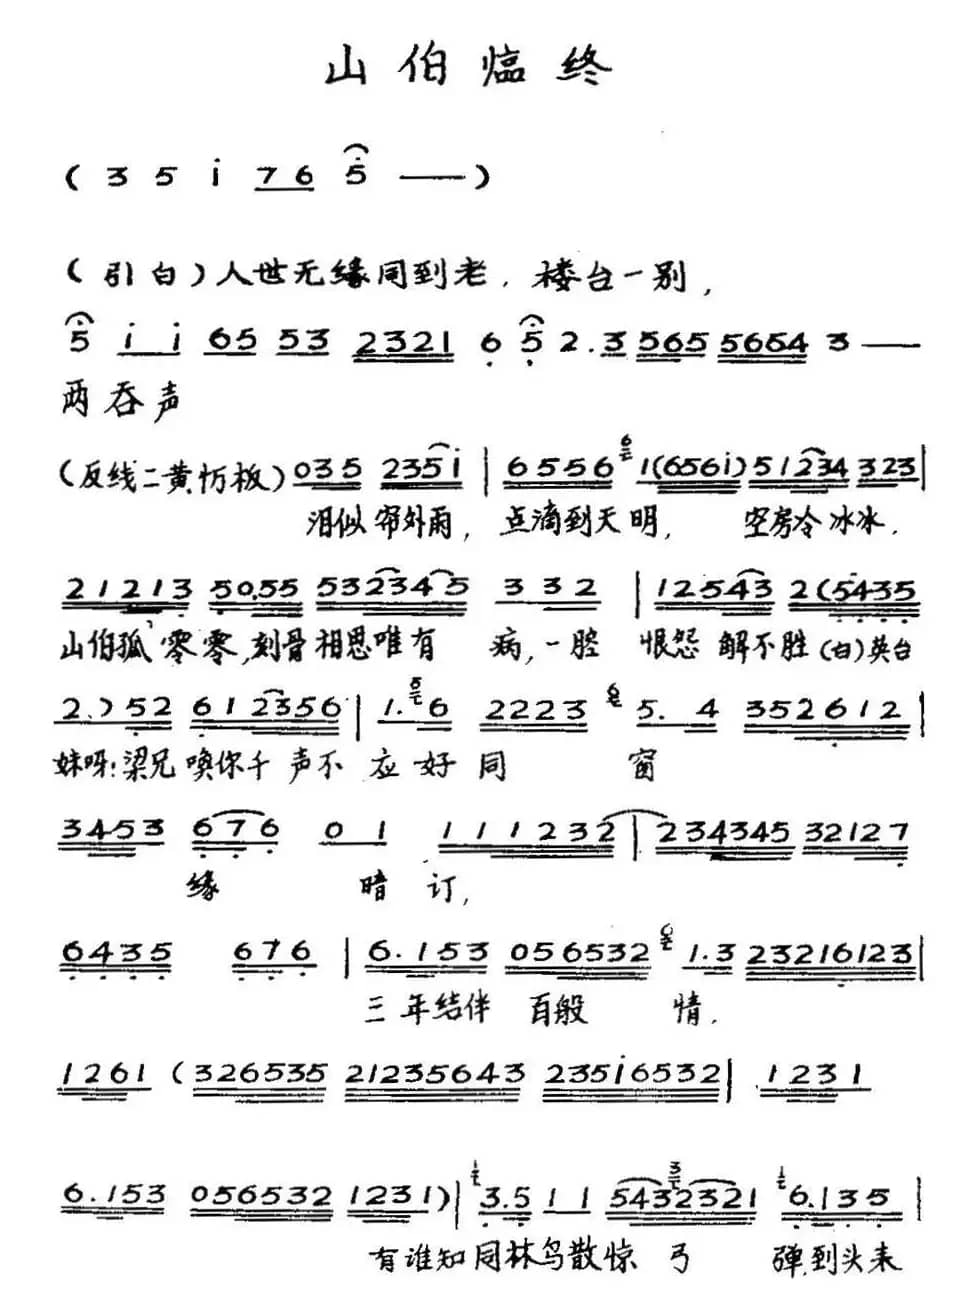 山伯临终
( 3 5 i 7 6 5 — )
(引白)人世无缘同到老,楼台一别,
5 i i 65 53 2321 6 5 2.3 565 5654 3 —
两吞声
(反线二黄忉板) 035 235i | 6556 1(656i) 51234 323 |
泪似帘外雨, 点滴到天明, 空房冷冰冰.
21213 50.55 532345 3 3 2 | 12543 2(5435
山伯孤零零,刻骨相思唯有 病,一腔 恨怨 解不胜 (白)英台
2.) 52 612356 | 1.6 2223 5. 4 352612 |
妹呀!梁兄唤你千声不应好同 窗
3453 676 0 1 111232 | 234345 32127
缘 暗订,
6435 676 | 6.153 056532 1.3 23216123 |
三年结伴 百般 情.
1261 (326535 21235643 235i6532 | 1231
6.153 056532 1231) | 3.5 1 1 5432321 6.135 |
有谁知同林鸟散惊 弓 弹到头来